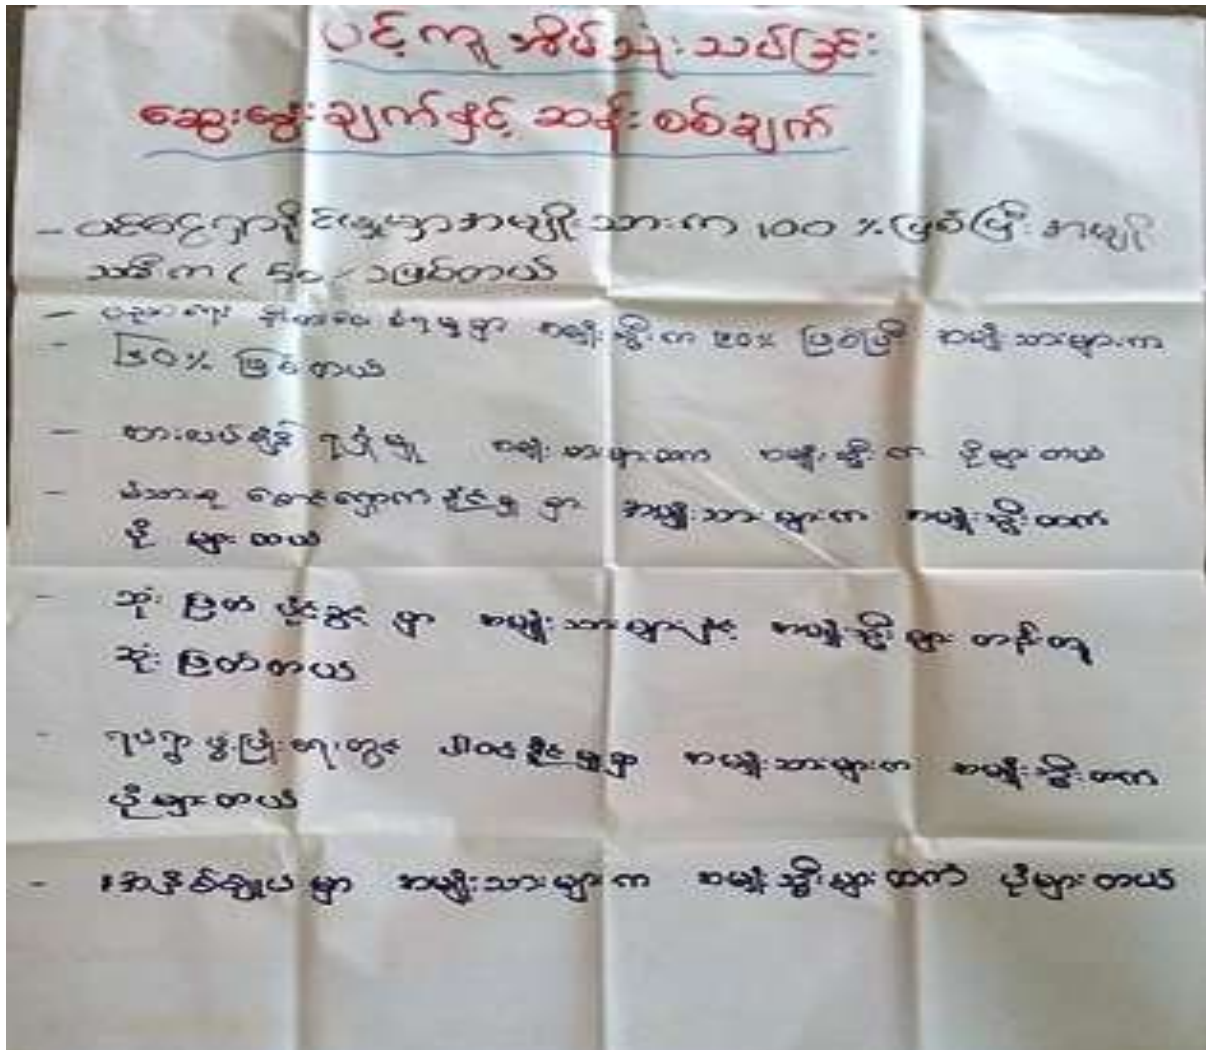 ပင့်ကူအိမ်သုံးသပ်ခြင်း
ဆွေးနွေးချက်နှင့် ဆန်းစစ်ချက်
- ဝင်ငွေရှာနိုင်မှုမှာအမျိုးသားက 100 % ဖြစ်ပြီး အမျိုး
သမီးက ( 50 ) ဖြစ်တယ်
- ပညာရေး မှာ အမျိုးသ္မီးက % ဖြစ်ပြီး အမျိုးသားများက
- % ဖြစ်တယ်
- စားဝတ် အမျိုးသားများထက် အမျိုးသ္မီးက ပိုများတယ်
- မိသားစု စောင့်ရှောက်နိုင်မှု မှာ အမျိုးသားများက အမျိုးသ္မီးထက်
ပို များတယ်
- ဆုံးဖြတ်ပိုင်ခွင့် မှာ အမျိုးသားများနှင့် အမျိုးသ္မီးများ တန်းတူ
ဆုံးဖြတ်တယ်
- ရပ်ရွာဖွံ့ဖြိုးရေးတွင် ပါဝင်နိုင်မှုမှာ အမျိုးသားများက အမျိုးသ္မီးထက်
ပိုများတယ်
- မှာ အမျိုးသားများက အမျိုးသ္မီးများထက် ပိုများတယ်